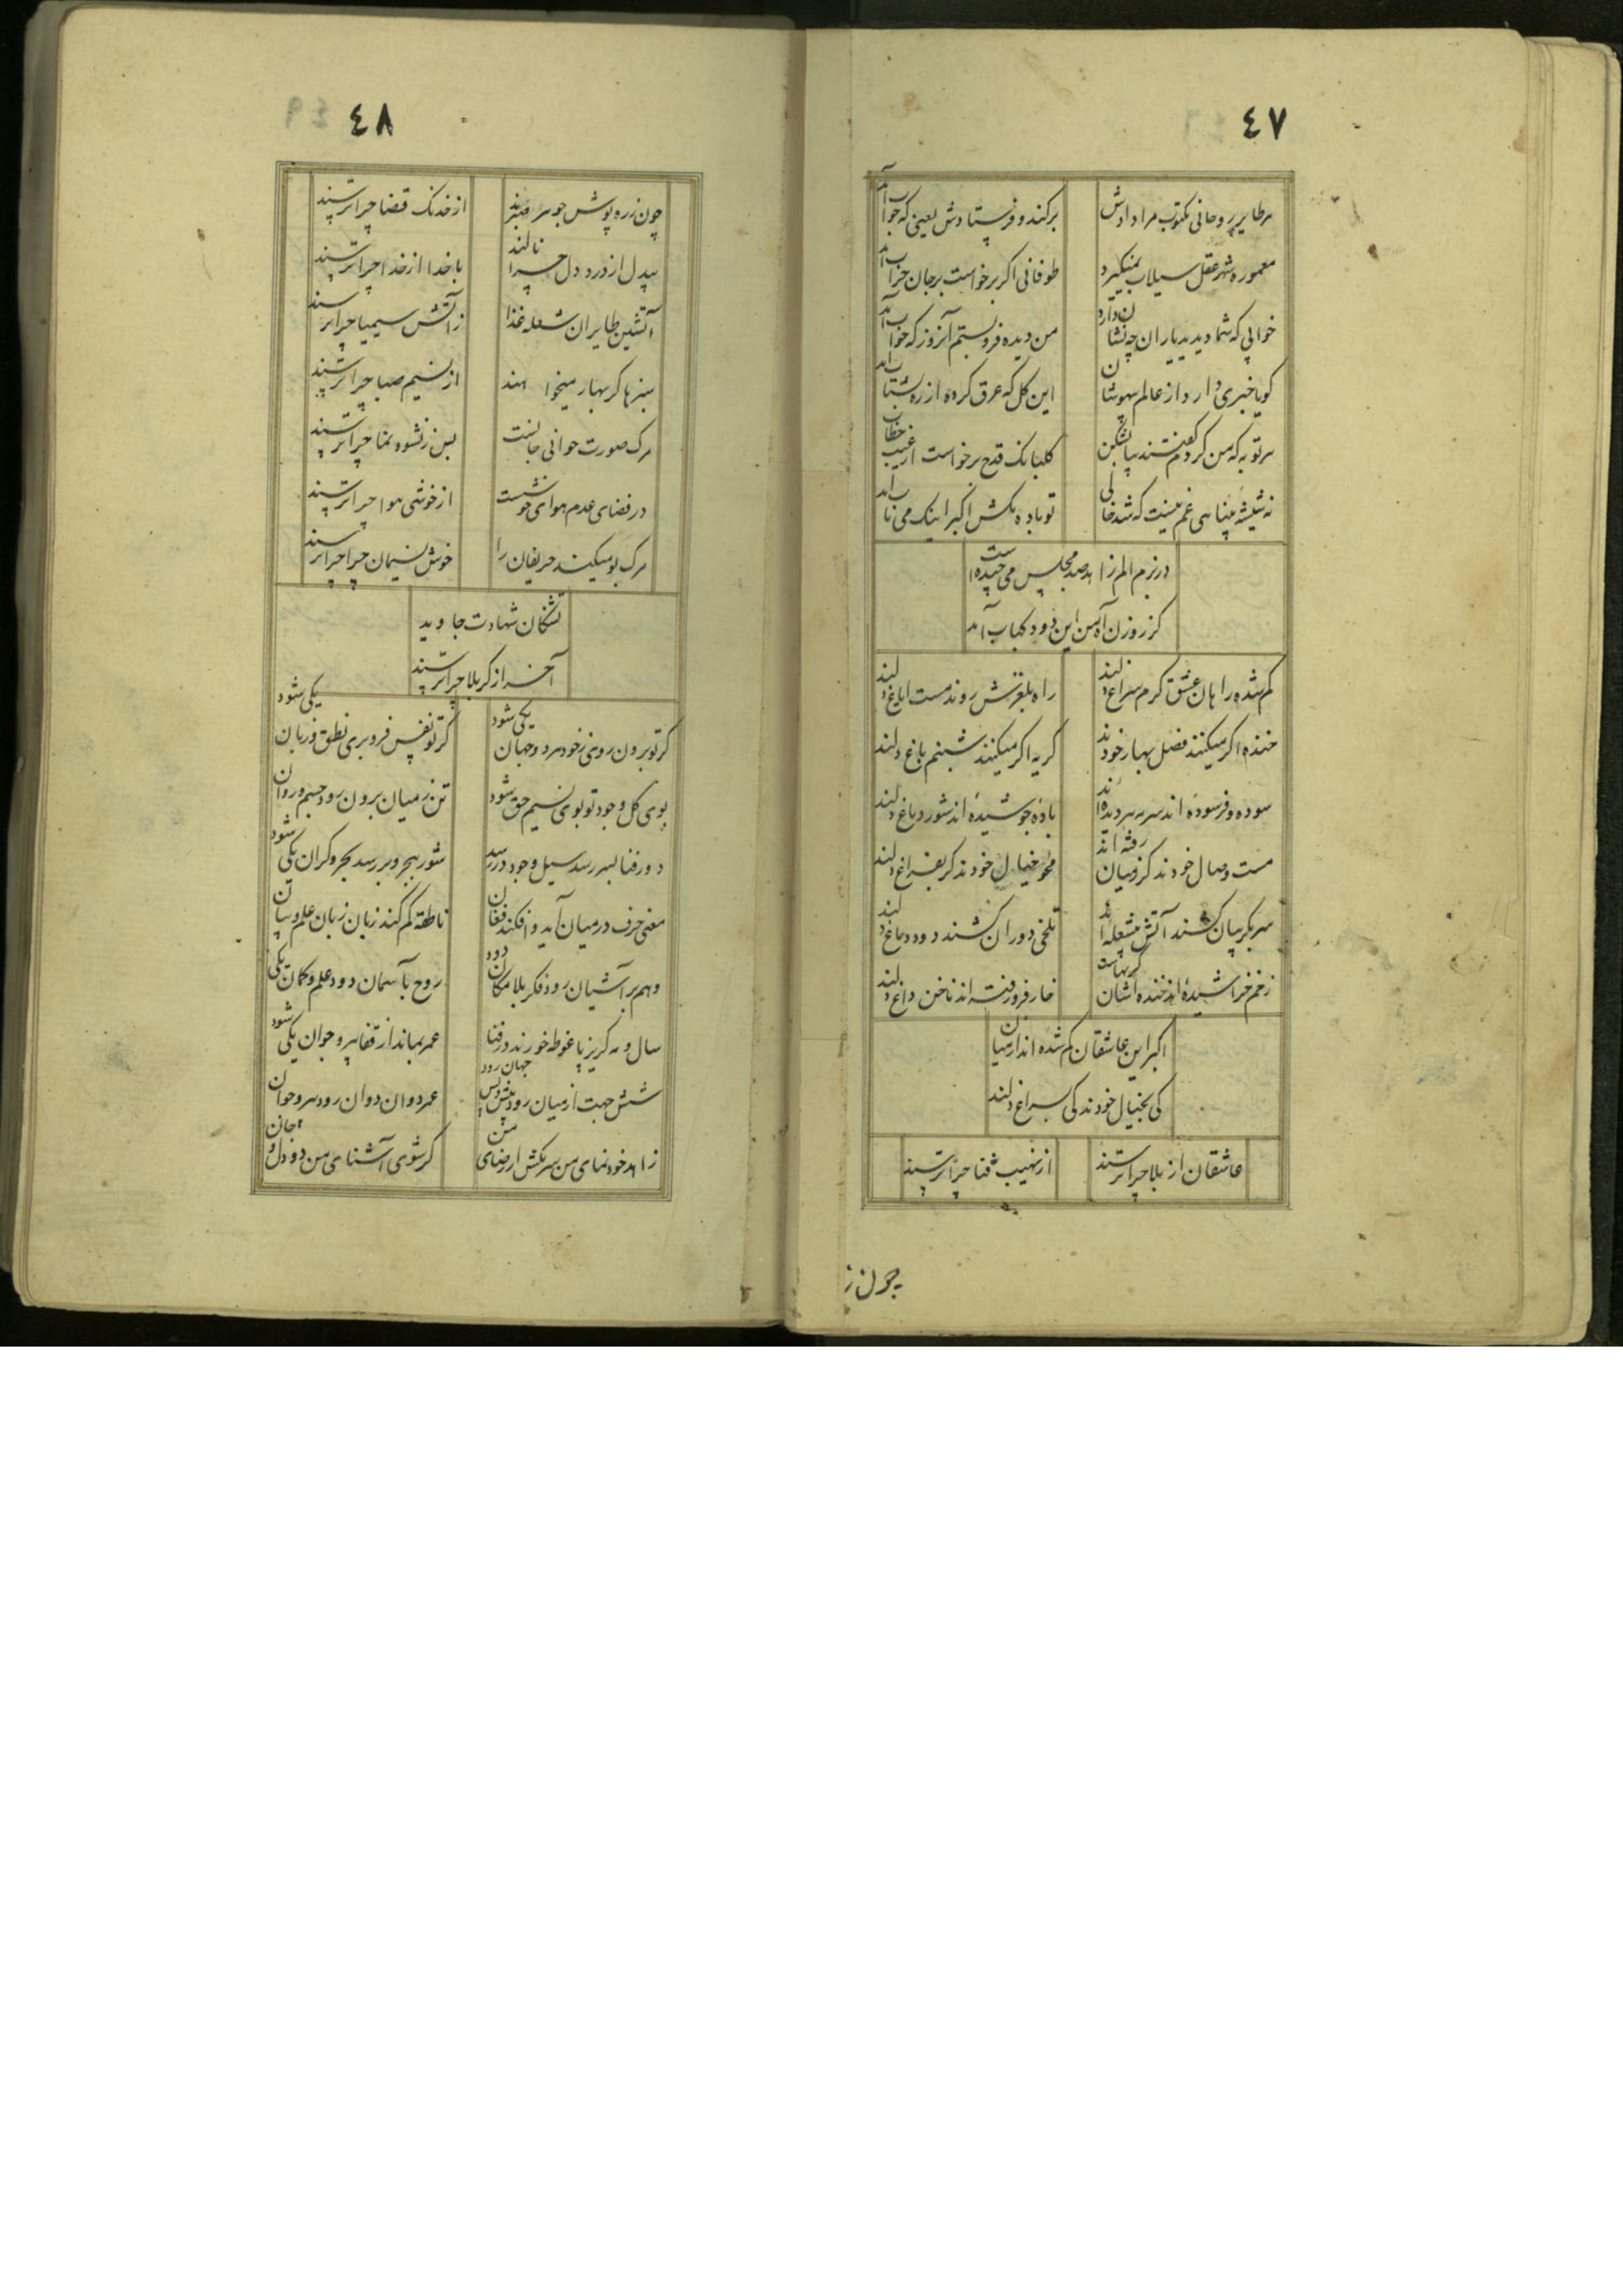 ٤٧
هر طایر روحانی مکتوب مرا دادش برکند و فرستادش یعنی که جواب آمد
معموره شهر عقل سیلاب نمیگیرد طوفانی اکر برخواست بر جان خراب آمد
خوابی که شما دیدید یاران چه نشان دارد من دیده فرو بستم آنروز که خواب آمد
کویا خبری دارد از عالم بیهوشان این کل که عرق کرده از ره شتاب آمد
هر توبه که من کردم کفتند بیا بشکن کلبانک قدح برخواست از غیب خطاب آمد
نه شیشه مینا هی غم نیست که شد خالی تو باده بکش اکبر اینک می ناب آمد
در بزم الم زاهد صد مجلس می چیده است
کز روزن آه من این دود کباب آمد
کم شده را هان عشق کرم سراغ دلند راه بلغزش روند مست ایاغ دلند
خنده اکر میکنند فصل بهار خودند کریه اکر میکنند شبنم باغ دلند
سوده و فرسوده اند سرمه هر دیده اند باده جوشیده اند شور دماغ دلند
مست وصال خودند کز میان رفته اند محو خیال خودند کر بفراغ دلند
سر بکریبان کشند آتش پر شعله اند تلخی دوران کشند دود دماغ دلند
زخم خراشیده اند خنده اشان کریهاست خار فرو رفته اند ناخن داغ دلند
اکبر این عاشقان کم شده اند از میان
کی بخیال خودند کی بسراغ دلند
عاشقان از بلا چرا ترسند از نهیب فنا چرا ترسند
چون ز
٤٨
چون زره پوش جوهر از خدنک قضا چرا ترسند
بیدل از درد دل چرا نالند با خدا از خدا چرا ترسند
آتشین طایران شعله غذا ز آتش سیمیا چرا ترسند
سبزها کر بهار میخواهند از نسیم صبا چرا ترسند
مرک صورت حوانی جانست پس ز نشوه نما چرا ترسند
در فضای عدم هوای خوشست از خوشی هوا چرا ترسند
مرک بو میکیند حریفان را خوش نسیمان چرا چرا ترسند
تشنکان شهادت جاوید
آخر از کربلا چرا ترسند
کر تو برون روی ز خود هر دو جهان یکی شود کر تو نفس فرو بری نطق و زبان یکی شود
بوی کل وجود تو بوی نسیم حق شود تن ز میان برون رود جسم و روان
دور فنا بسر رسد سیل وجود در رسد شور بجر و بر رسد بحر و کران یکی شود
معنی حرف در میان آید و افکند فغان ناطقه کم کند زبان زبان علم و بیان
وهم بر آشیان رود فکر بلا مکان دود روح بآسمان دود علم و کمان یکی
سال و مه کریز پا غوطه خورند در فنا عمر بماند از قفا پیر و جوان یکی شود
شش جهت از میان رود پیش و پس جهان رود عمر دوان دوان رود سر و جوان
زاهد خودنمای من سر مکش از رضای من کر شوی آشنای من دو دل و جان